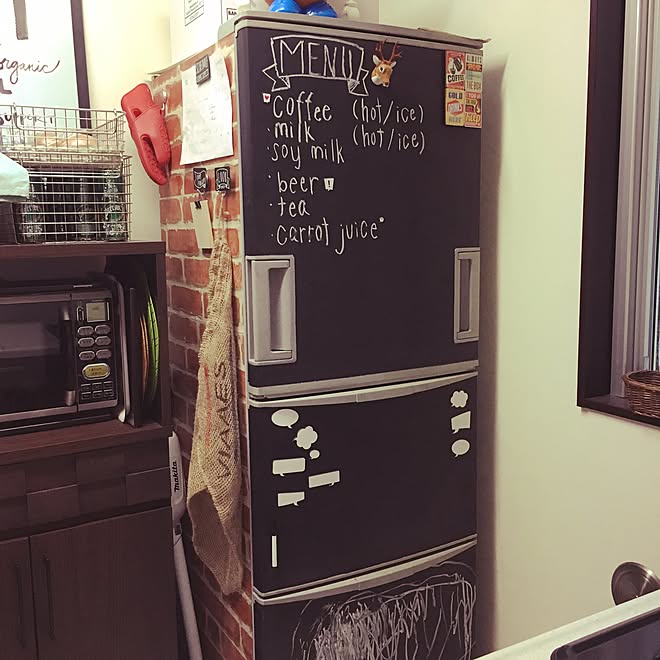 organic
MENU
coffee (hot/ice)
・milk (hot/ice)
・soy milk
・beer
・tea
・carrot juice
COFFEE
makita